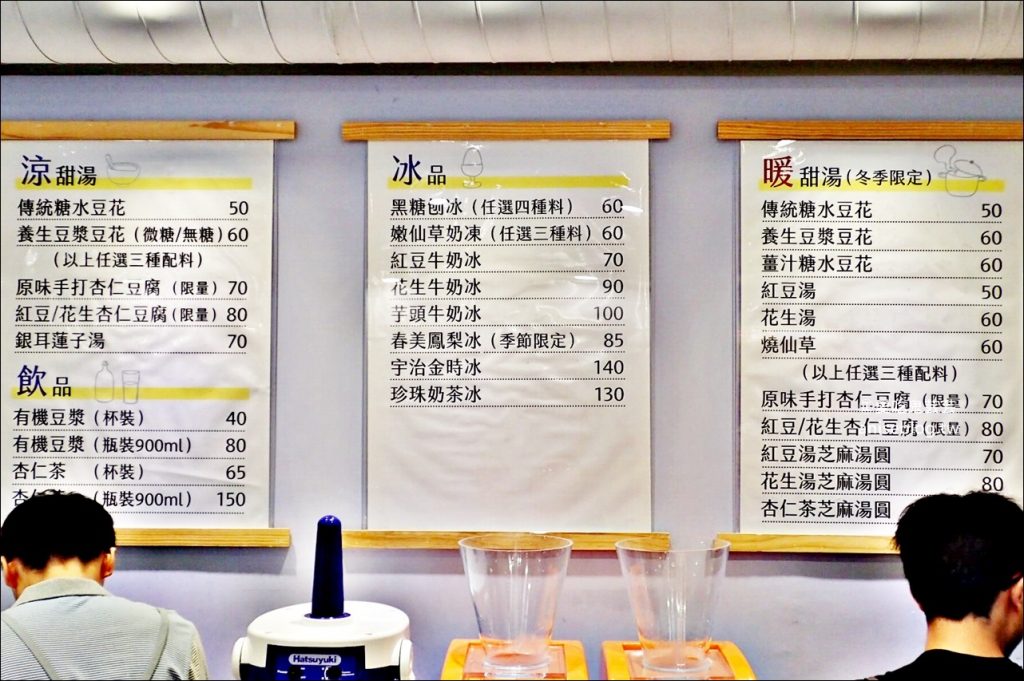 涼甜湯
傳統糖水豆花 50
養生豆漿豆花(微糖/無糖)60
(以上任選三種配料)
原味手打杏仁豆腐(限量)70
紅豆/花生杏仁豆腐(限量)80
銀耳蓮子湯 70
飲品
有機豆漿(杯裝) 40
有機豆漿(瓶裝900ml) 80
杏仁茶 (杯裝) 65
杏仁茶(瓶裝900ml) 150
冰品
黑糖刨冰(任選四種料) 60
嫩仙草奶凍(任選三種料)60
紅豆牛奶冰 70
花生牛奶冰 90
芋頭牛奶冰 100
春美鳳梨冰(季節限定) 85
宇治金時冰 140
珍珠奶茶冰 130
暖甜湯(冬季限定)
傳統糖水豆花 50
養生豆漿豆花 60
薑汁糖水豆花 60
紅豆湯 50
花生湯 60
燒仙草 60
(以上任選三種配料)
原味手打杏仁豆腐(限量)70
紅豆/花生杏仁豆腐(限量)80
紅豆湯芝麻湯圓 70
花生湯芝麻湯圓 80
杏仁茶芝麻湯圓
Hatsuyuki